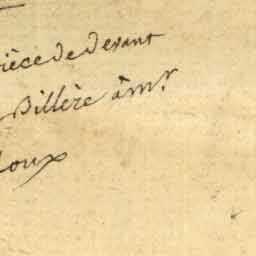 ièce de devant
Billère à mr
loux